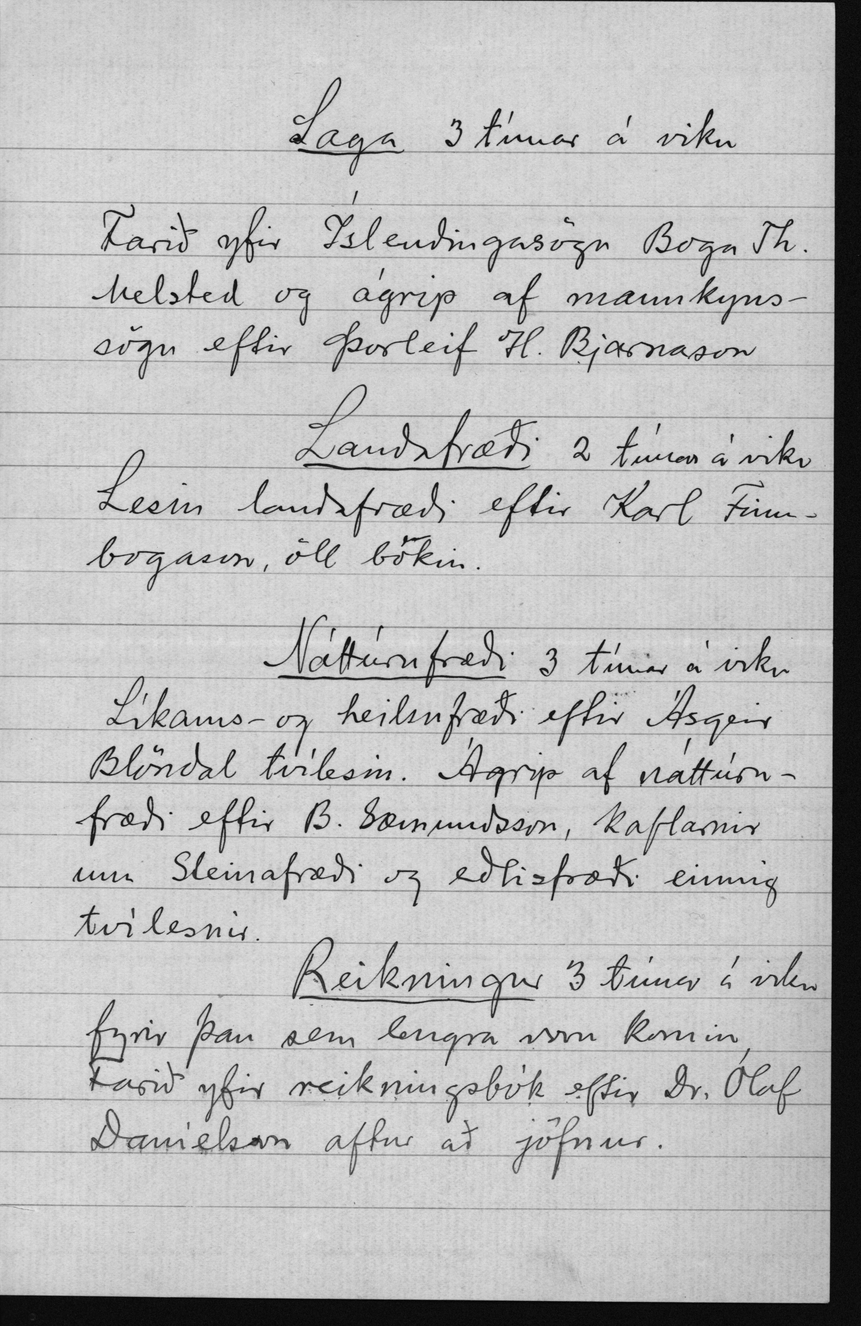 Saga 3 tímar á viku
Farið yfir Íslendingasögu Boga Th.
Melsted og ágrip af mannkyns-
sögu eftir Þorleif H. Bjarnason
Landafræði 2 tímar á viku
Lesin landafræði eftir Karl Finn-
bogason, öll bókin.
Náttúrufræði 3 tímar á viku
Líkams- og heilsufræði eftir Ásgeir
Blöndal tvílesin. Ágrip af náttúru-
fræði eftir B. Sæmundsson, kaflarnir
um Steinafræði og eðlisfræði einnig
tvílesnir.
Reikningur 3 tímar á viku
fyrir þau sem lengra voru komin
Farið yfir reikningsbók eftir Dr. Ólaf
Danielsson aftur að jöfnur.